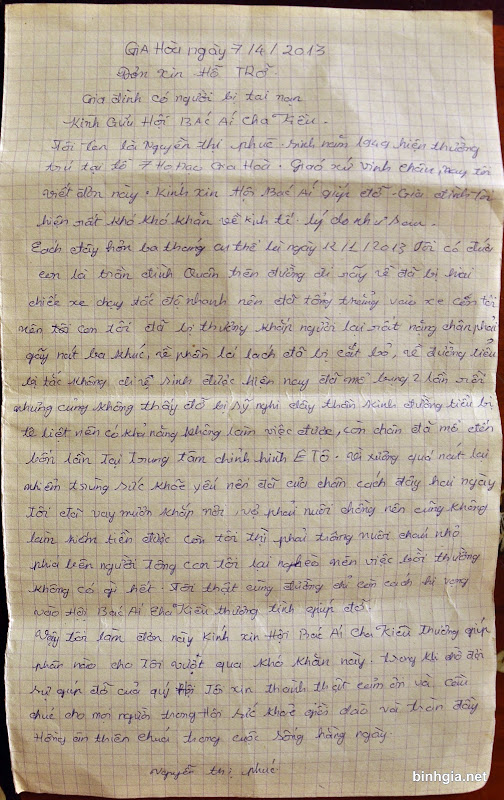 Gia Hòa ngày 7/4/2013
Đơn xin Hỗ Trợ
Gia đình có người bị tai nạn
Kính Gửi Hội BÁC Ái Cha Kiều.
Tôi tên là Nguyễn thị phúc sinh năm 1949 hiện thường
trú tại tổ 7 Họ Đạo Gia Hoà. Giáo xứ Vinh Châu, nay tôi
viết đơn này. Kính xin Hội Bác Ái giúp đỡ Gia đình tôi
hiện rất khó khó khăn về kinh tế. lý do như sau.
Cách đây hơn ba tháng cụ thể là ngày 12/1/2013 Tôi có đứa
con là trần đình Quân trên đường đi rẫy về đã bị hai
chiếc xe chạy tốc độ nhanh nên đã tông thẳng vào xe con tôi
nên tôi con tôi đã bị thương khắp người lại rất nặng chân phải
gãy nát ba khúc, về phần lá lách đã bị cắt bỏ, về đường tiểu
bị tắc không đi vệ sinh được hiện nay đã mổ bụng 2 lần rồi
nhưng cũng không thấy đỡ bị sỹ nghi dây thần kinh đường tiểu bị
tê liệt nên có khả năng không làm việc được, còn chân đã mổ đến
bốn lần Tại Trung tâm chỉnh hình ETÔ. Vì xương quá nát lại
nhiễm trùng sức khỏe yếu nên đã cưa chân cách đây hai ngày
Tôi đã vay mướn khắp nơi, vợ phải nuôi chồng nên cũng không
làm kiếm tiền được còn tôi thì phải trông nuôi cháu nhỏ
phía bên người Tông con tôi lại nghèo nên việc bồi thường
không có gì hết. Tôi thật cùng đường chỉ còn cách hi vọng
vào Hội Bác Ái Cha Kiều thương tình giúp đỡ.
Vậy tôi làm đơn này Kính xin Hội Bác Ái Cha Kiều Thương giúp
phần nào cho Tôi vượt qua khó khăn này. trong khi chờ đợi
sự giúp đỡ của quý Hội Tô xin thành thật cảm ơn và cầu
chúc cho mọi người trong Hội sức khoẻ dồi dào và tràn đầy
Hồng ân thiên chúa trong cuộc sống hằng ngày.
Nguyễn thị phúc
binhgia.net